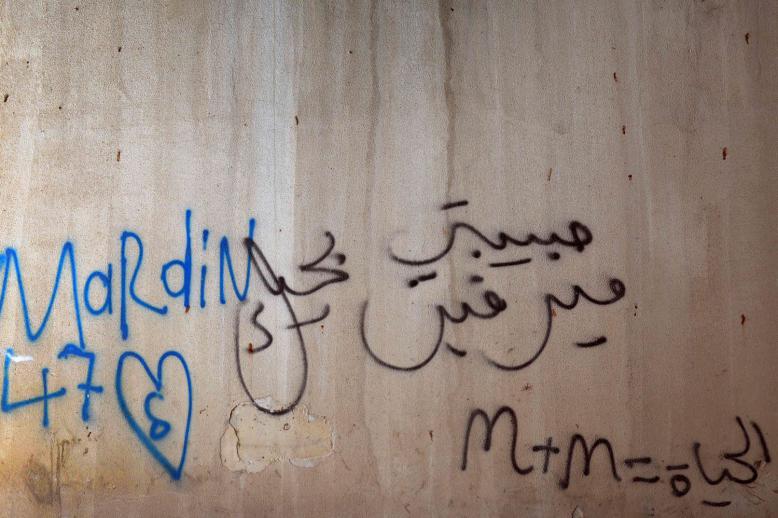 MaRdiN
47
حبيبتي
ميرفين
M+M=الحياة